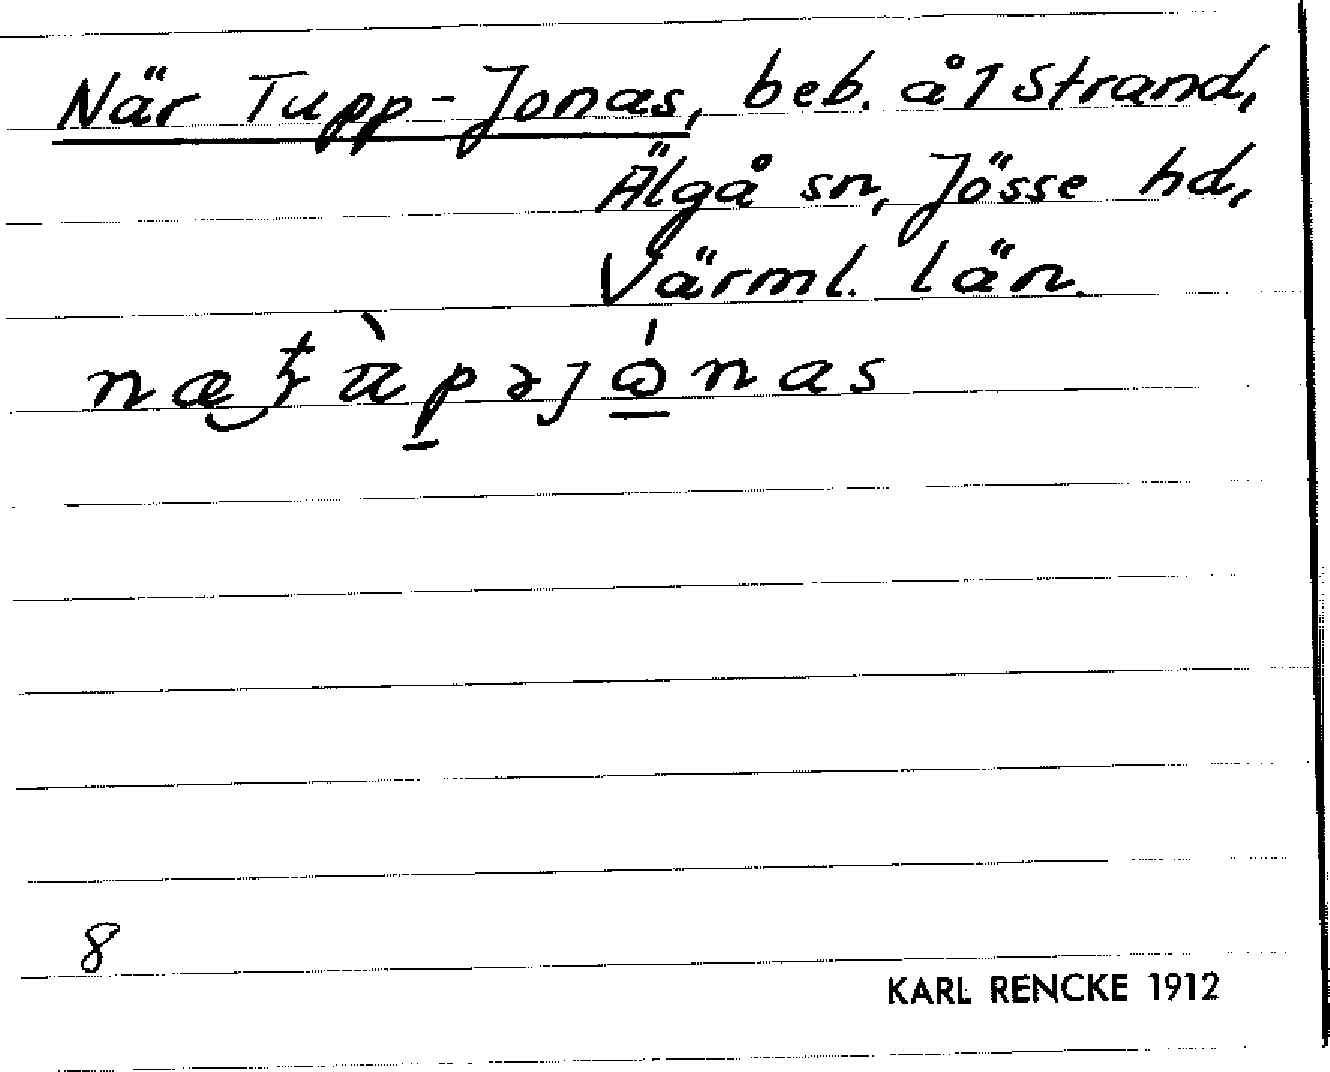 När Tupp-Jonas, beb. å 1 Strand,
Älgå sn, Jösse hd,
Värml. län.
8
KARL RENCKE 1912